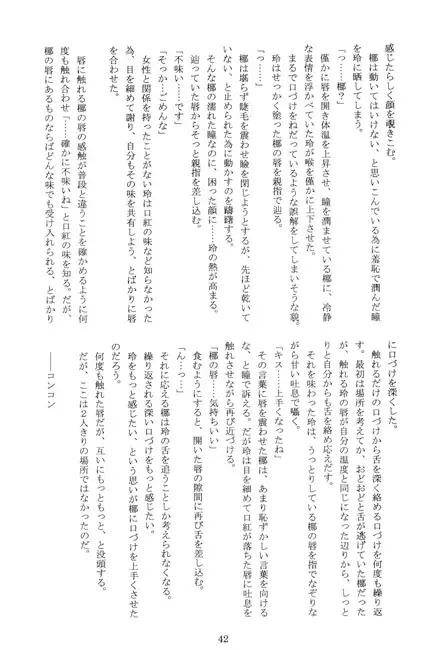 感じたらしく顔を覗きこむ。
　椰は動いてはいけない、と思いこんでいる為に羞恥で潤んだ瞳
を玲に晒してしまう。
「っ……椰？」
　僅かに唇を開き体温を上昇させ、瞳を潤ませている椰に、冷静
な表情を浮かべていた玲が喉を僅かに上下させた。
　まるで口づけをねだっているような誤解をしてしまいそうな貌。
　玲はせっかく塗った椰の唇を親指で辿る。
「っ……」
　椰は堪らず睫毛を震わせ瞼を閉じようとするが、先ほど乾いて
いない、と止められた為に動かすのを躊躇する。
　そんな椰の濡れた瞳なのに、困った顔に……玲の熱が高まる。
　辿っていた唇からそっと親指を差し込む。
「不味い……です」
「そっか…ごめんな」
　女性と関係を持ったことがない玲は口紅の味など知らなかった
為、目を細めて謝り、自分もその味を共有しよう、とばかりに唇
を合わせた。
　唇に触れる椰の唇の感触が普段と違うことを確かめるように何
度も触れ合わせ「……確かに不味いね」と口紅の味を知る。だが、
椰の唇にあるものならばどんな味でも受け入れられる、とばかり
に口づけを深くした。
　触れるだけの口づけから舌を深く絡める口づけを何度も繰り返
す。最初は場所を考えてか、おどおどと舌が逃げていた椰だった
が、触れる玲の唇が自分の温度と同じになった辺りから、しっと
りと自分からも舌を絡め応えだす。
　それを味わった玲は、うっとりしている椰の唇を指でなぞりな
がら甘い吐息で囁く。
「キス……上手くなったね」
　その言葉に唇を震わせた椰は、あまり恥ずかしい言葉を向ける
な、と瞳で訴える。だが玲は目を細めて口紅が落ちた唇に吐息を
触れさせながら再び近づける。
「椰の唇……気持ちいい」
　食むようにすると、開いた唇の隙間に再び舌を差し込む。
「んっ……」
　それに応える椰は玲の舌を追うことしか考えられなくなる。
　繰り返される深い口づけをもっと感じたい。
　玲をもっと感じたい、という思いが椰に口づけを上手くさせた
のだろう。
　何度も触れた唇だが、互いにもっともっと、と没頭する。
　だが、ここは２人きりの場所ではなかったのだ。
――コンコン
42